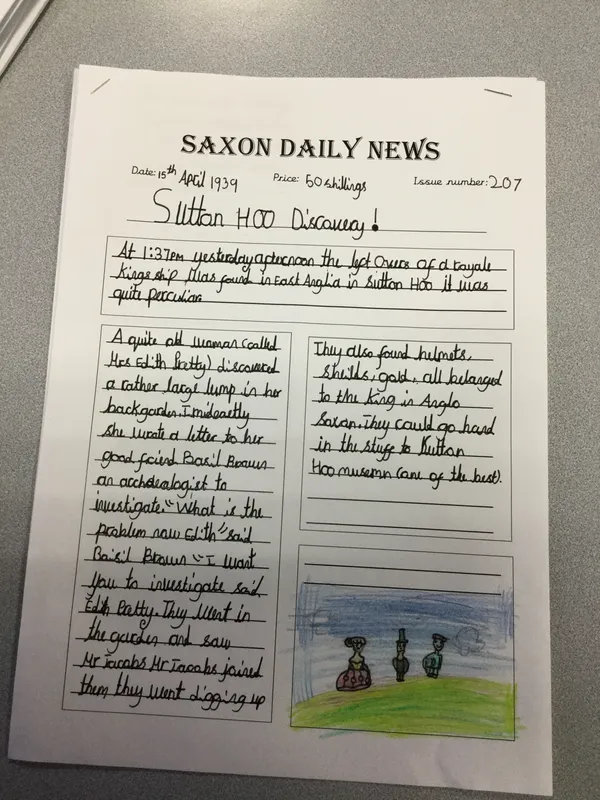 SAXON DAILY NEWS
Date: 15th April 1939 Price: 50 shillings Issue number: 207
Sutton Hoo Discovery!
At 1:37pm yesterday afternoon the left Overs of a royale
Kings ship, Was found in East Anglia in Sutton Hoo it was
quite perculiar
A quite old woman (called
Mrs Edith Pretty) discovered
a rather large lump in her
backgarden. Imideatly
she wrote a letter to her
good friend Basil Brown
an archdealogist to
investigate. "What is the
problem now Edith" said
Baisil Brown "I want
you to investigate said
Edith Pretty. They went in
the garden and saw
Mr Jacobs Mr Jacobs joined
them they went digging up
They also found helmets,
sheilds, gold, all belonged
to the King in Anglo
Saxon. They could go hand
in the stuff to Sutton
Hoo musemn (one of the best).